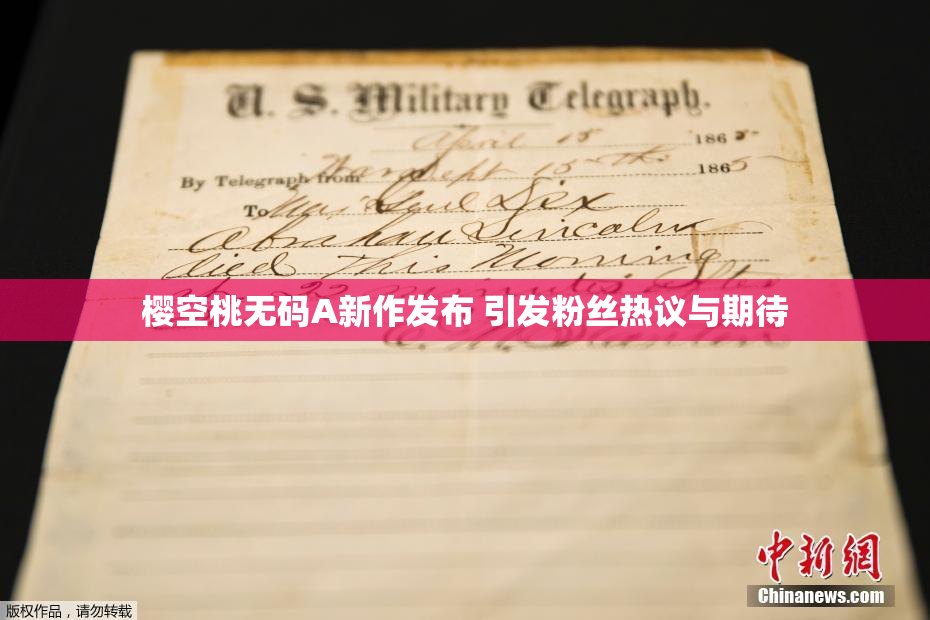 U. S. Military Telegraph.
April 15 1865
By Telegraph from War Dept 15th 1865
To Maj Genl Dix
Abraham Lincoln
died This Morning
at 22 minutes after
樱空桃无码A新作发布 引发粉丝热议与期待
E. M. Stanton
中新网
Chinanews.com
版权作品，请勿转载